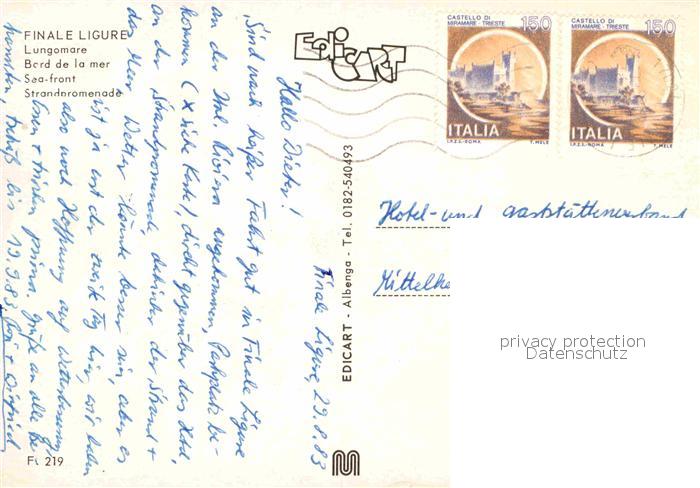 FINALE LIGURE
Lungomare
Bord de la mer
Sea-front
Strandpromenade
EdiCART
CASTELLO DI
MIRAMARE - TRIESTE
150
ITALIA
I.P.Z.S.-ROMA T. MELE
CASTELLO DI
MIRAMARE - TRIESTE
150
ITALIA
I.P.Z.S.-ROMA T. MELE
Finale Ligure, 29.8.83
Hallo Dieter!
Sind nach heißer Fahrt gut in Finale Ligure
an der Ital. Riviera angekommen, Parkplatz be-
kommen (x siehe Karte), direkt gegenüber das Hotel,
an der Strandpromenade, dahinter der Strand +
das Meer. Wetter könnte besser sein, aber es
ist ja erst der zweite Tag hier, wir haben
also noch Hoffnung auf Wetterbesserung,
Essen + trinken prima. Grüße an alle Be-
kannten, tschüß bis 19.9.83
EDICART - Albenga - Tel. 0182-540493
Hotel- und Gaststättenverband
Mittelhe
privacy protection
Datenschutz
Ft 219
M